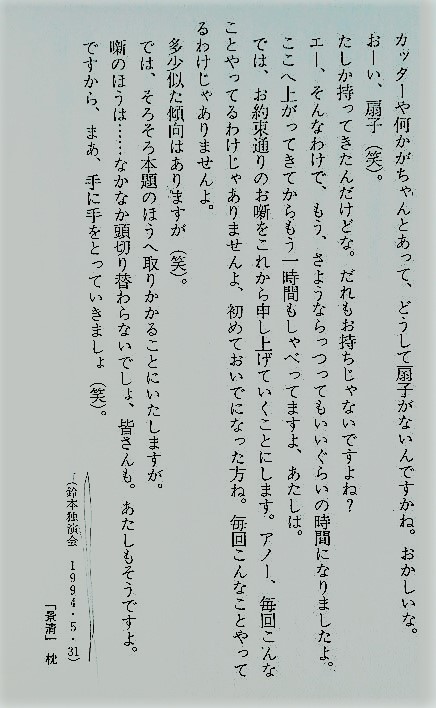 カッターや何かがちゃんとあって、どうして扇子がないんですかね。おかしいな。
おーい、扇子（笑）。
たしか持ってきたんだけどな。だれもお持ちじゃないですよね？
エー、そんなわけで、もう、さようならっつってもいいぐらいの時間になりましたよ。
ここへ上がってきてからもう一時間もしゃべってますよ、あたしは。
では、お約束通りのお噺をこれから申し上げていくことにします。アノー、毎回こんな
ことやってるわけじゃありませんよ、初めておいでになった方ね。毎回こんなことやって
るわけじゃありませんよ。
多少似た傾向はありますが（笑）。
では、そろそろ本題のほうへ取りかかることにいたしますが。
噺のほうは……なかなか頭切り替わらないでしょ、皆さんも。あたしもそうですよ。
ですから、まあ、手に手をとっていきましょ（笑）。
（鈴本独演会 1994・5・31）
「景清」枕